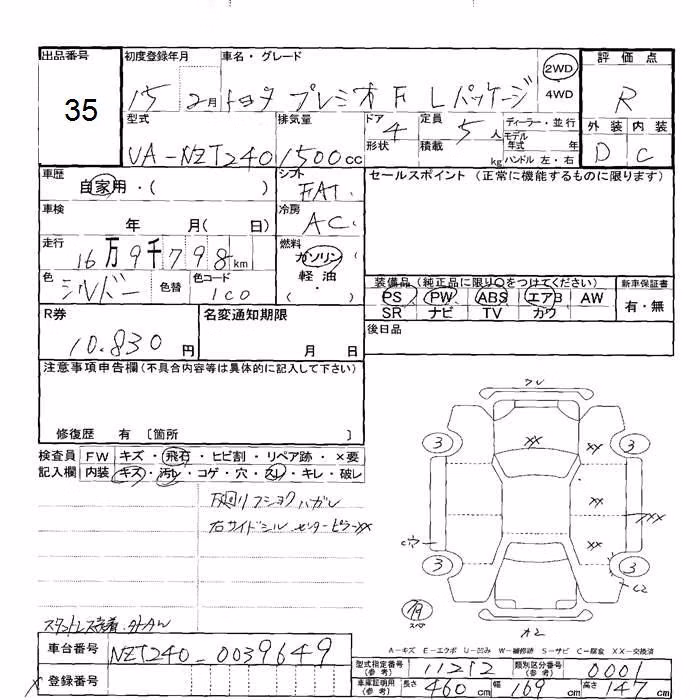 出品番号
35
初度登録年月
15 2月
車名・グレード
トヨタ プレミオ F Lパッケージ
2WD
4WD
評価点
R
外装 内装
D C
型式
UA-NZT240
排気量
1500cc
ドア 4
形状
定員 5人
積載 kg
ディーラー・並行
モデル
年式 年
ハンドル 左・右
車歴
自家用・( )
シフト
FAT
車検
年 月( 日)
冷房
AC
走行
16万9千798km
燃料
ガソリン
軽・油
( ・ )
色
シルバー
色替
色コード
1C0
セールスポイント (正常に機能するものに限ります)
装備品 (純正品に限り○をつけてください)
PS PW ABS エアB AW
SR ナビ TV カワ
新車保証書
有・無
後日品
R券
10.830円
名変通知期限
月 日
注意事項申告欄(不具合内容等は具体的に記入して下さい)
修復歴 有 〔箇所 〕
検査員 FW キズ・飛石・ヒビ割・リペア跡・×要
記入欄 内装 キズ・汚レ・コゲ・穴・スレ・キレ・破レ
下廻りフショクハガレ
右サイドシル センターピラーXX
XX
XY
XX
XX
XX
3
3
3
3
C穴
C2
A2
スペ
A-キズ E-エクボ U-凹み W-補修跡 S-サビ C-腐食 XX-交換済
車台番号
NZT240-0039649
登録番号
型式指定番号
(参考)
11212
類別区分番号
(参考)
0001
車庫証明用
(参考)
長さ 460cm
幅 169cm
高さ 147cm